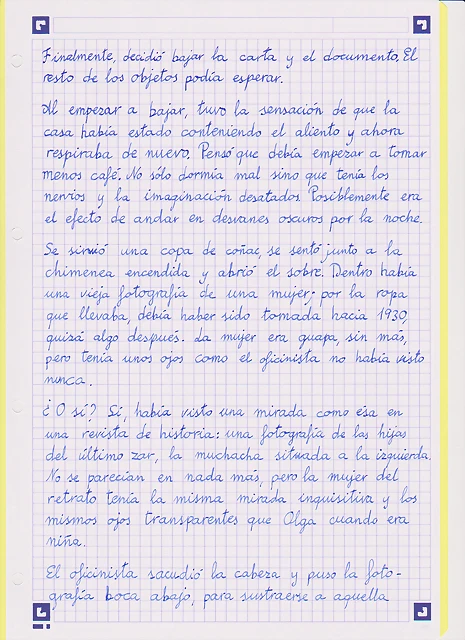 Finalmente, decidió bajar la carta y el documento. El
resto de los objetos podía esperar.
Al empezar a bajar, tuvo la sensación de que la
casa había estado conteniendo el aliento y ahora
respiraba de nuevo. Pensó que debía empezar a tomar
menos café. No sólo dormía mal sino que tenía los
nervios y la imaginación desatados. Posiblemente era
el efecto de andar en desvanes oscuros por la noche.
Se sirvió una copa de coñac, se sentó junto a la
chimenea encendida y abrió el sobre. Dentro había
una vieja fotografía de una mujer; por la ropa
que llevaba, debía haber sido tomada hacia 1930,
quizá algo después. La mujer era guapa, sin más,
pero tenía unos ojos como el oficinista no había visto
nunca.
¿O sí? Sí, había visto una mirada como esa en
una revista de historia: una fotografía de las hijas
del último zar, la muchacha situada a la izquierda.
No se parecían en nada más, pero la mujer del
retrato tenía la misma mirada inquisitiva y los
mismos ojos transparentes que Olga cuando era
niña.
El oficinista sacudió la cabeza y puso la foto-
grafía boca abajo, para sustraerse a aquella